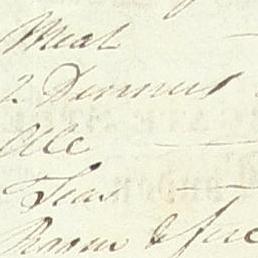 Meat
2 Dinners
Ale
Teas
Room & fire